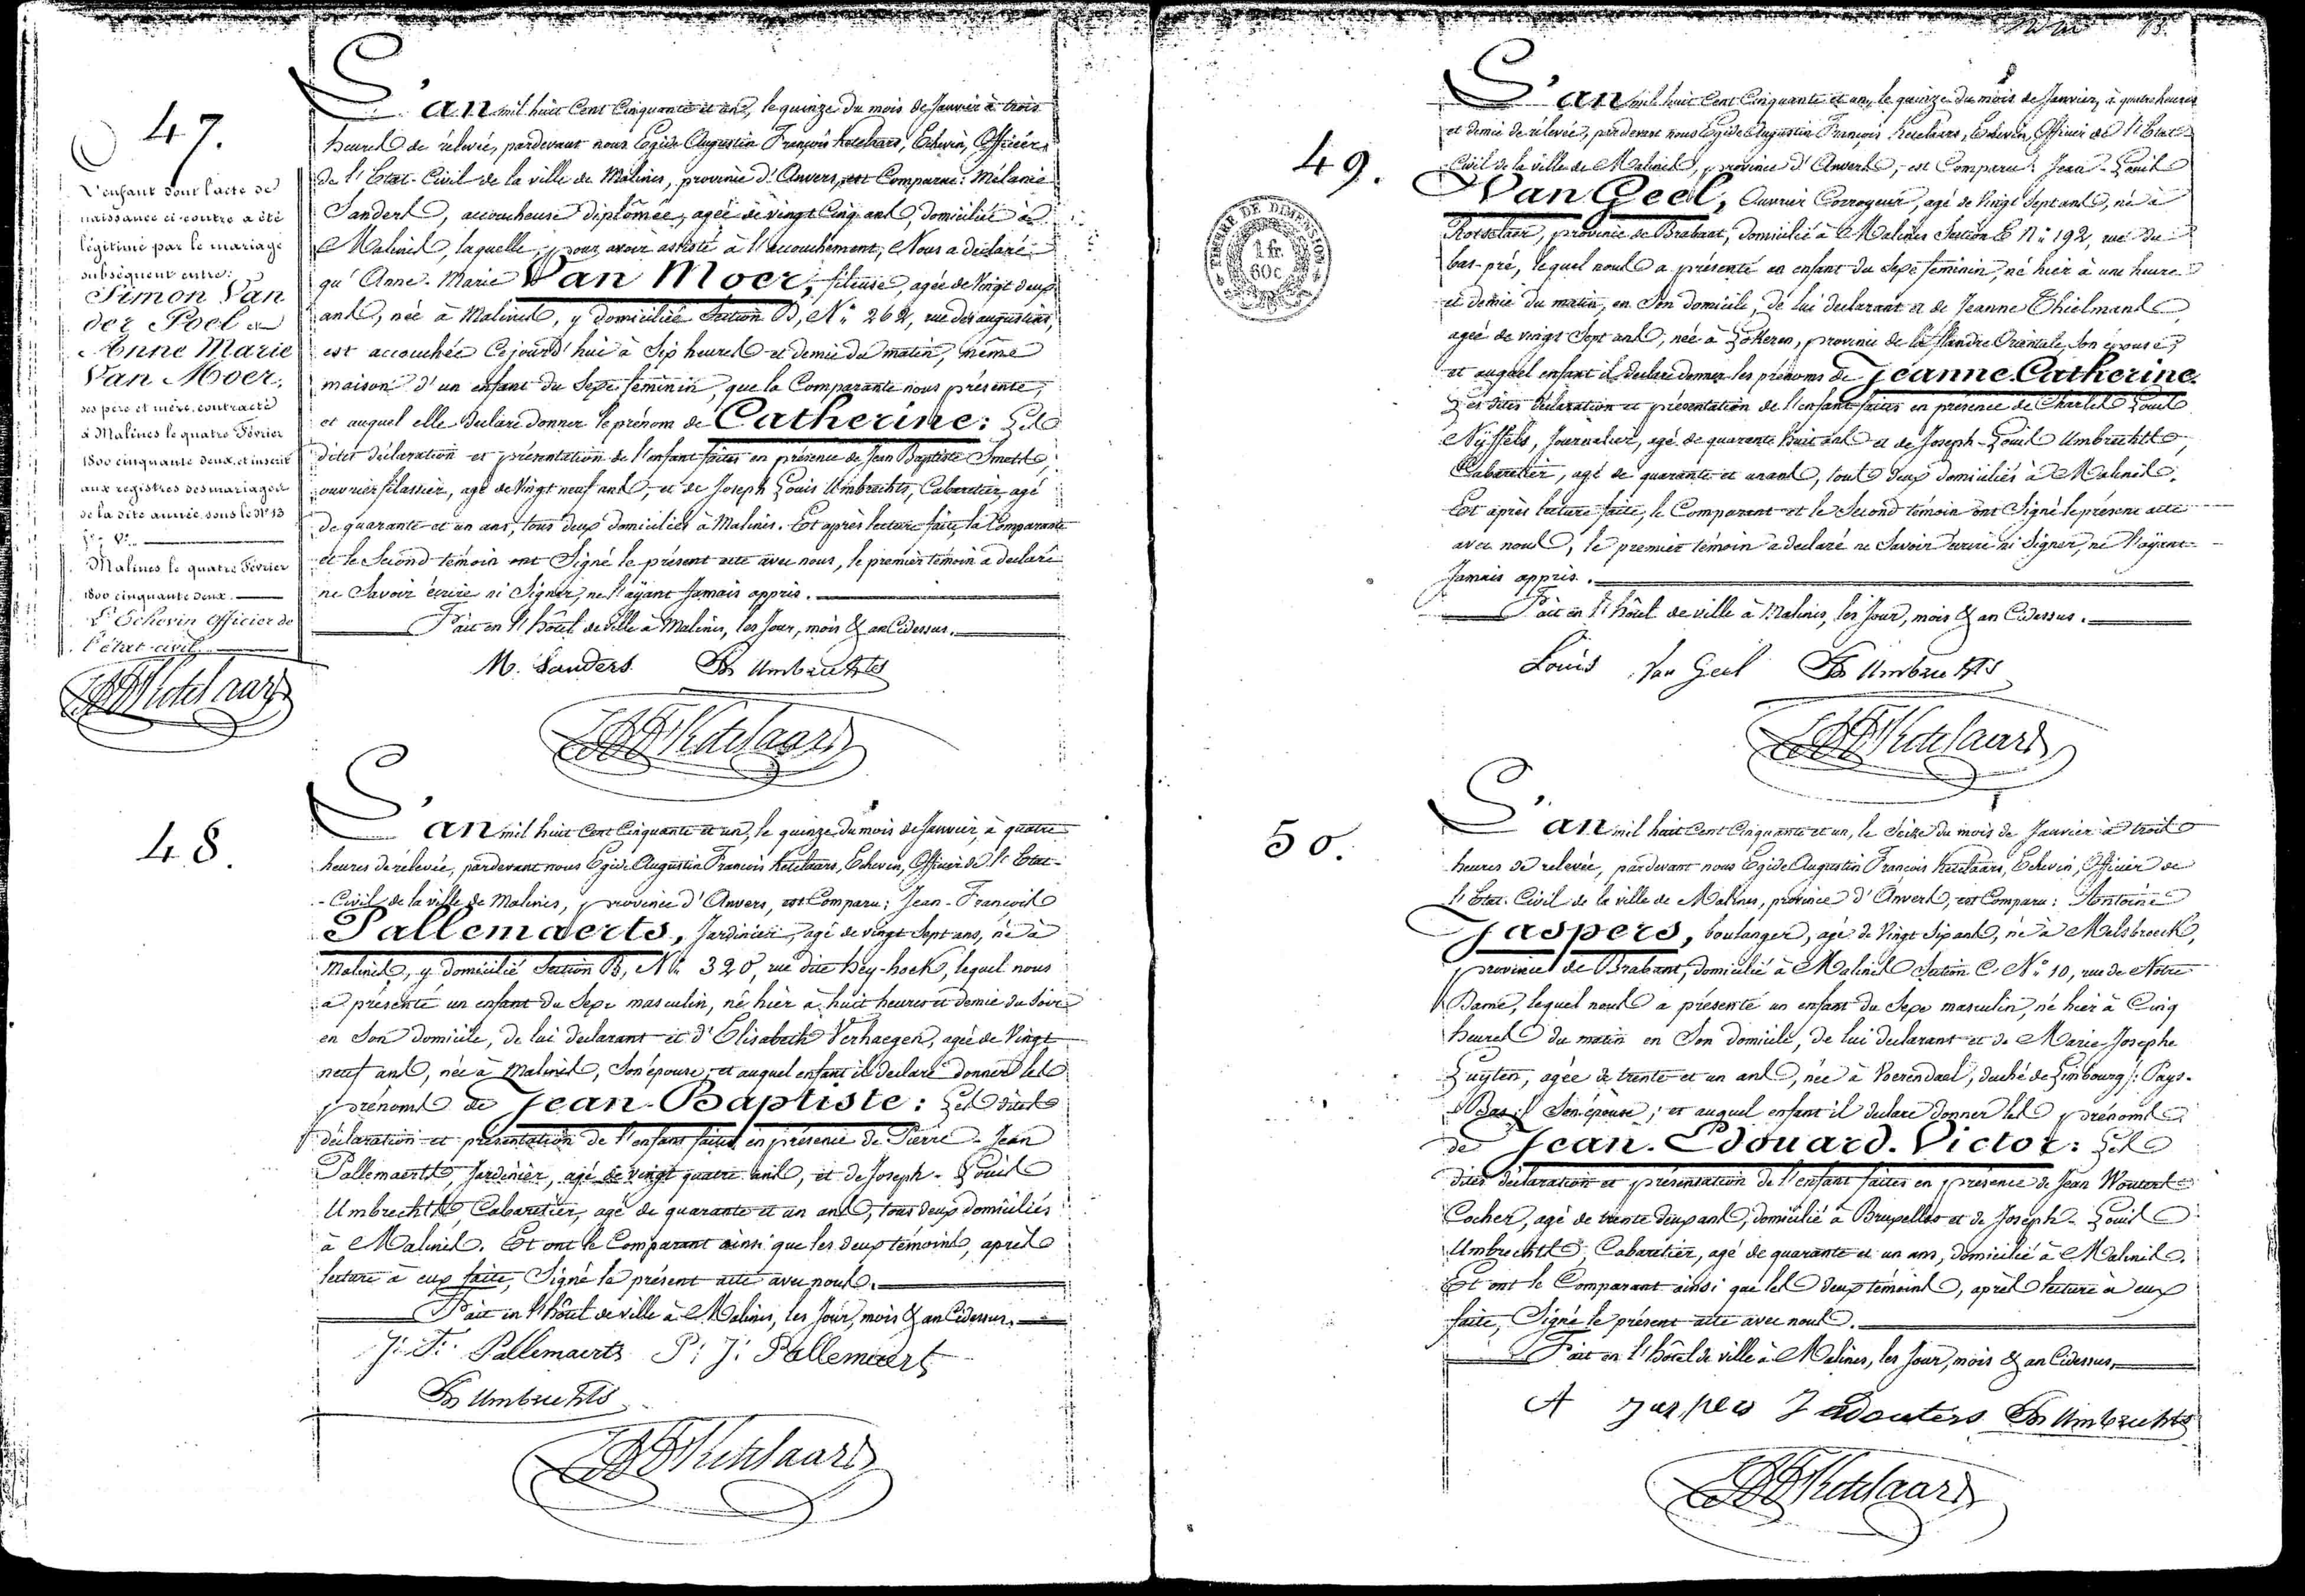 47.
L'enfant dont l'acte de
naissance ci-contre a été
légitimé par le mariage
subséquent entre:
Simon Van
der Poel &
Anne Marie
Van Moer,
ses père et mère, contracté
à Malines le quatre Février
1800 cinquante deux, et inscrit
aux registres des mariages
de la dite année, sous le N° 13
Malines le quatre Février
1800 cinquante deux.
L'Echevin officier de
l'état-civil
L'an mil huit Cent Cinquante et un, le quinze du mois de Janvier à trois
heures de rélevée, pardevant nous Egide Augustin François Ketelaars, Echevin, Officier
de l'Etat-Civil de la ville de Malines, province d'Anvers, est Comparue: Mélanie
Sanders, accoucheuse diplômée, agée de vingt Cinq ans, domiciliée à
Malines, laquelle, pour avoir assisté à l'accouchement, Nous a déclaré
qu'Anne-Marie Van Moer, fileuse, agée de Vingt deux
ans, née à Malines, y domiciliée Section B, N° 262, rue des augustins,
est accouchée Cejourd'hui à Six heures et demie du matin, même
maison d'un enfant du Sexe féminin, que la Comparante nous présente,
et auquel elle declare donner le prénom de Catherine: Les
dites déclaration et présentation de l'enfant faites en présence de Jean Baptiste Smets,
ouvrier filassier, agé de Vingt neuf ans, et de Joseph Louis Umbrechts, Cabaretier, agé
de quarante et un ans, tous deux domiciliés à Malines. Et après lecture faite, la Comparante
et le Second témoin ont Signé le présent acte avec nous, le premier témoin a declaré
ne Savoir écrire ni Signer, ne l'ayant Jamais appris.
Fait en l'hôtel de ville à Malines, les Jour, mois & an Cidessus.
M. Sanders Umbrechts
Ketelaars
48.
L'an mil huit Cent Cinquante et un, le quinze du mois de Janvier, à quatre
heures de rélevée, pardevant nous Egide Augustin François Ketelaars, Echevin, Officier de l'Etat-
-Civil de la ville de Malines, province d'Anvers, est Comparu: Jean-François
Pallemaerts, Jardinier, agé de vingt Sept ans, né à
Malines, y domicilié Section B, N° 320, rue dite hey-hoek, lequel nous
a présenté un enfant du Sexe masculin, né hier à huit heures et demie du Soir
en Son domicile, de lui declarant et d'Elisabeth Verhaegen, agée de Vingt
neuf ans, née à Malines, Son épouse; et auquel enfant il declare donner les
prénoms de Jean-Baptiste: Les dites
déclaration et présentation de l'enfant faites en présence de Pierre-Jean
Pallemaerts, Jardinier, agé de vingt quatre ans, et de Joseph-Louis
Umbrechts, Cabaretier, agé de quarante et un ans, tous deux domiciliés
à Malines. Et ont le Comparant ainsi que les deux témoins, après
lecture à eux faite, Signé le présent acte avec nous.
Fait en l'hôtel de ville à Malines, les Jour, mois & an Cidessus.
J: F: Pallemaerts P: J: Pallemaerts
Umbrechts
Ketelaars
49.
TIMBRE DE DIMENSION
1 fr.
60c
L'an mil huit Cent Cinquante et un, le quinze du mois de Janvier, à quatre heures
et demie de rélevée, pardevant nous Egide Augustin François Ketelaars, Echevin, Officier de l'Etat
Civil de la ville de Malines, province d'Anvers, est Comparu: Jean-Louis
Van Geel, Ouvrier Corroyeur, agé de Vingt Sept ans, né à
Rotselaer, province de Brabant, domicilié à Malines Section E N° 192, rue du
bas-pré, lequel nous a présenté un enfant du Sexe féminin, né hier à une heure
et demie du matin, en Son domicile, de lui declarant et de Jeanne Thielmans
agée de vingt Sept ans, née à Lokeren, province de la flandre Orientale, Son épouse;
et auquel enfant il declare donner les prénoms de Jeanne-Catherine.
Les dites déclaration et présentation de l'enfant faites en présence de Charles Louis
Nijffels, Journalier, agé de quarante huit ans et de Joseph-Louis Umbrechts,
Cabaretier, agé de quarante et un ans, tous deux domiciliés à Malines.
Et après lecture faite, le Comparant et le Second témoin ont Signé le présent acte
avec nous, le premier témoin a declaré ne Savoir écrire ni Signer, ne l'ayant
Jamais appris.
Fait en l'hôtel de ville à Malines, les Jour, mois & an Cidessus.
Louis Van Geel Umbrechts
Ketelaars
50.
L'an mil huit Cent Cinquante et un, le Seize du mois de Janvier à trois
heures de relevée, pardevant nous Egide Augustin François Ketelaars, Echevin, Officier de
l'Etat-Civil de la ville de Malines, province d'Anvers, est Comparu: Antoine
Jaspers, boulanger, agé de Vingt Six ans, né à Melsbroeck,
province de Brabant, domicilié à Malines Section C N° 10, rue de Notre
Dame, lequel nous a présenté un enfant du Sexe masculin, né hier à Cinq
heures du matin en Son domicile, de lui declarant et de Marie-Josephe
Luyten, agée de trente et un ans, née à Voerendael, duché de Limbourg /: Pays-
Bas:/ Son épouse; et auquel enfant il declare donner les prénoms
de Jean-Edouard-Victor: Les
dites déclaration et présentation de l'enfant faites en présence de Jean Wouters
Cocher, agé de trente deux ans, domicilié à Bruxelles et de Joseph-Louis
Umbrechts, Cabaretier, agé de quarante et un ans, domicilié à Malines.
Et ont le Comparant ainsi que les deux témoins, après lecture à eux
faite, Signé le présent acte avec nous.
Fait en l'hôtel de ville à Malines, les Jour, mois & an Cidessus.
A Jaspers J Wouters Umbrechts
Ketelaars